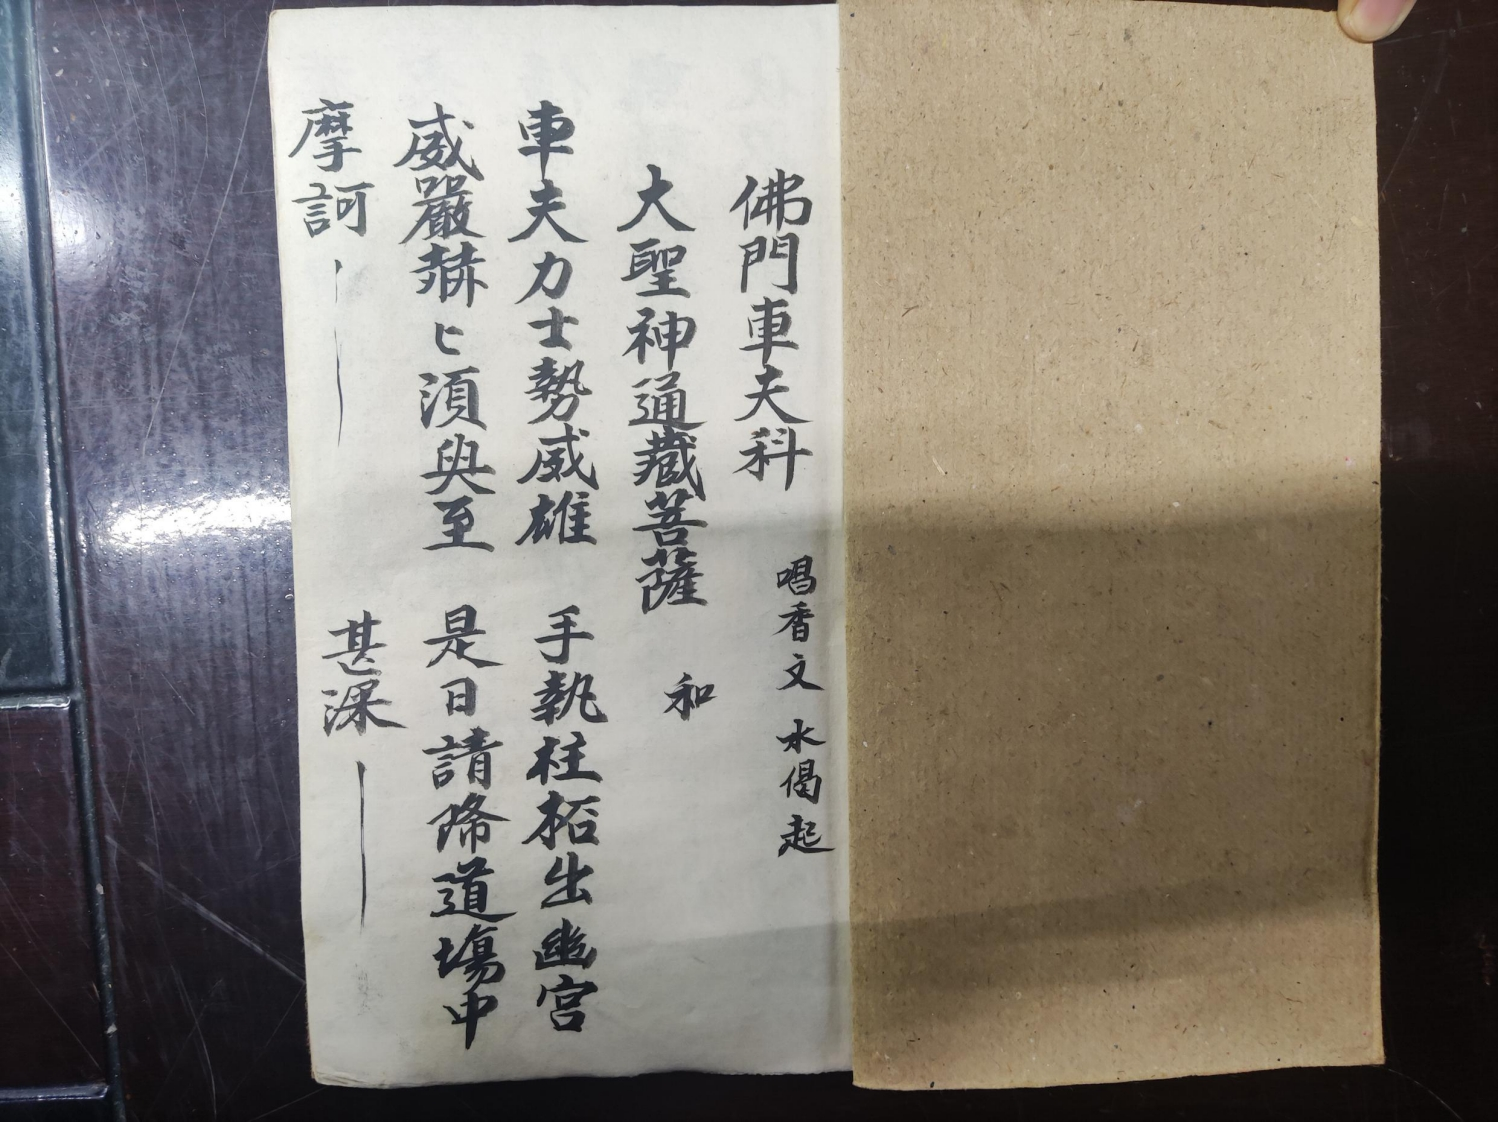 佛門車夫科
唱香文 水偈起
大聖神通藏菩薩 和
車夫力士勢威雄 手執柱杦出幽宮
威嚴赫匕須臾至 是日請降道場中
摩訶｜ 甚深｜